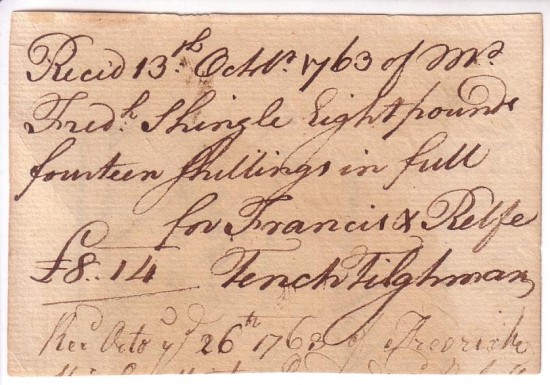 Recd 13th Octbr 1763 of Mr
Fredk Shingle Eight pounds
fourteen shillings in full
for Francis & Relfe
£8..14 Tench Tilghman
Recd Octo ye 26th 1763 of Fredrick